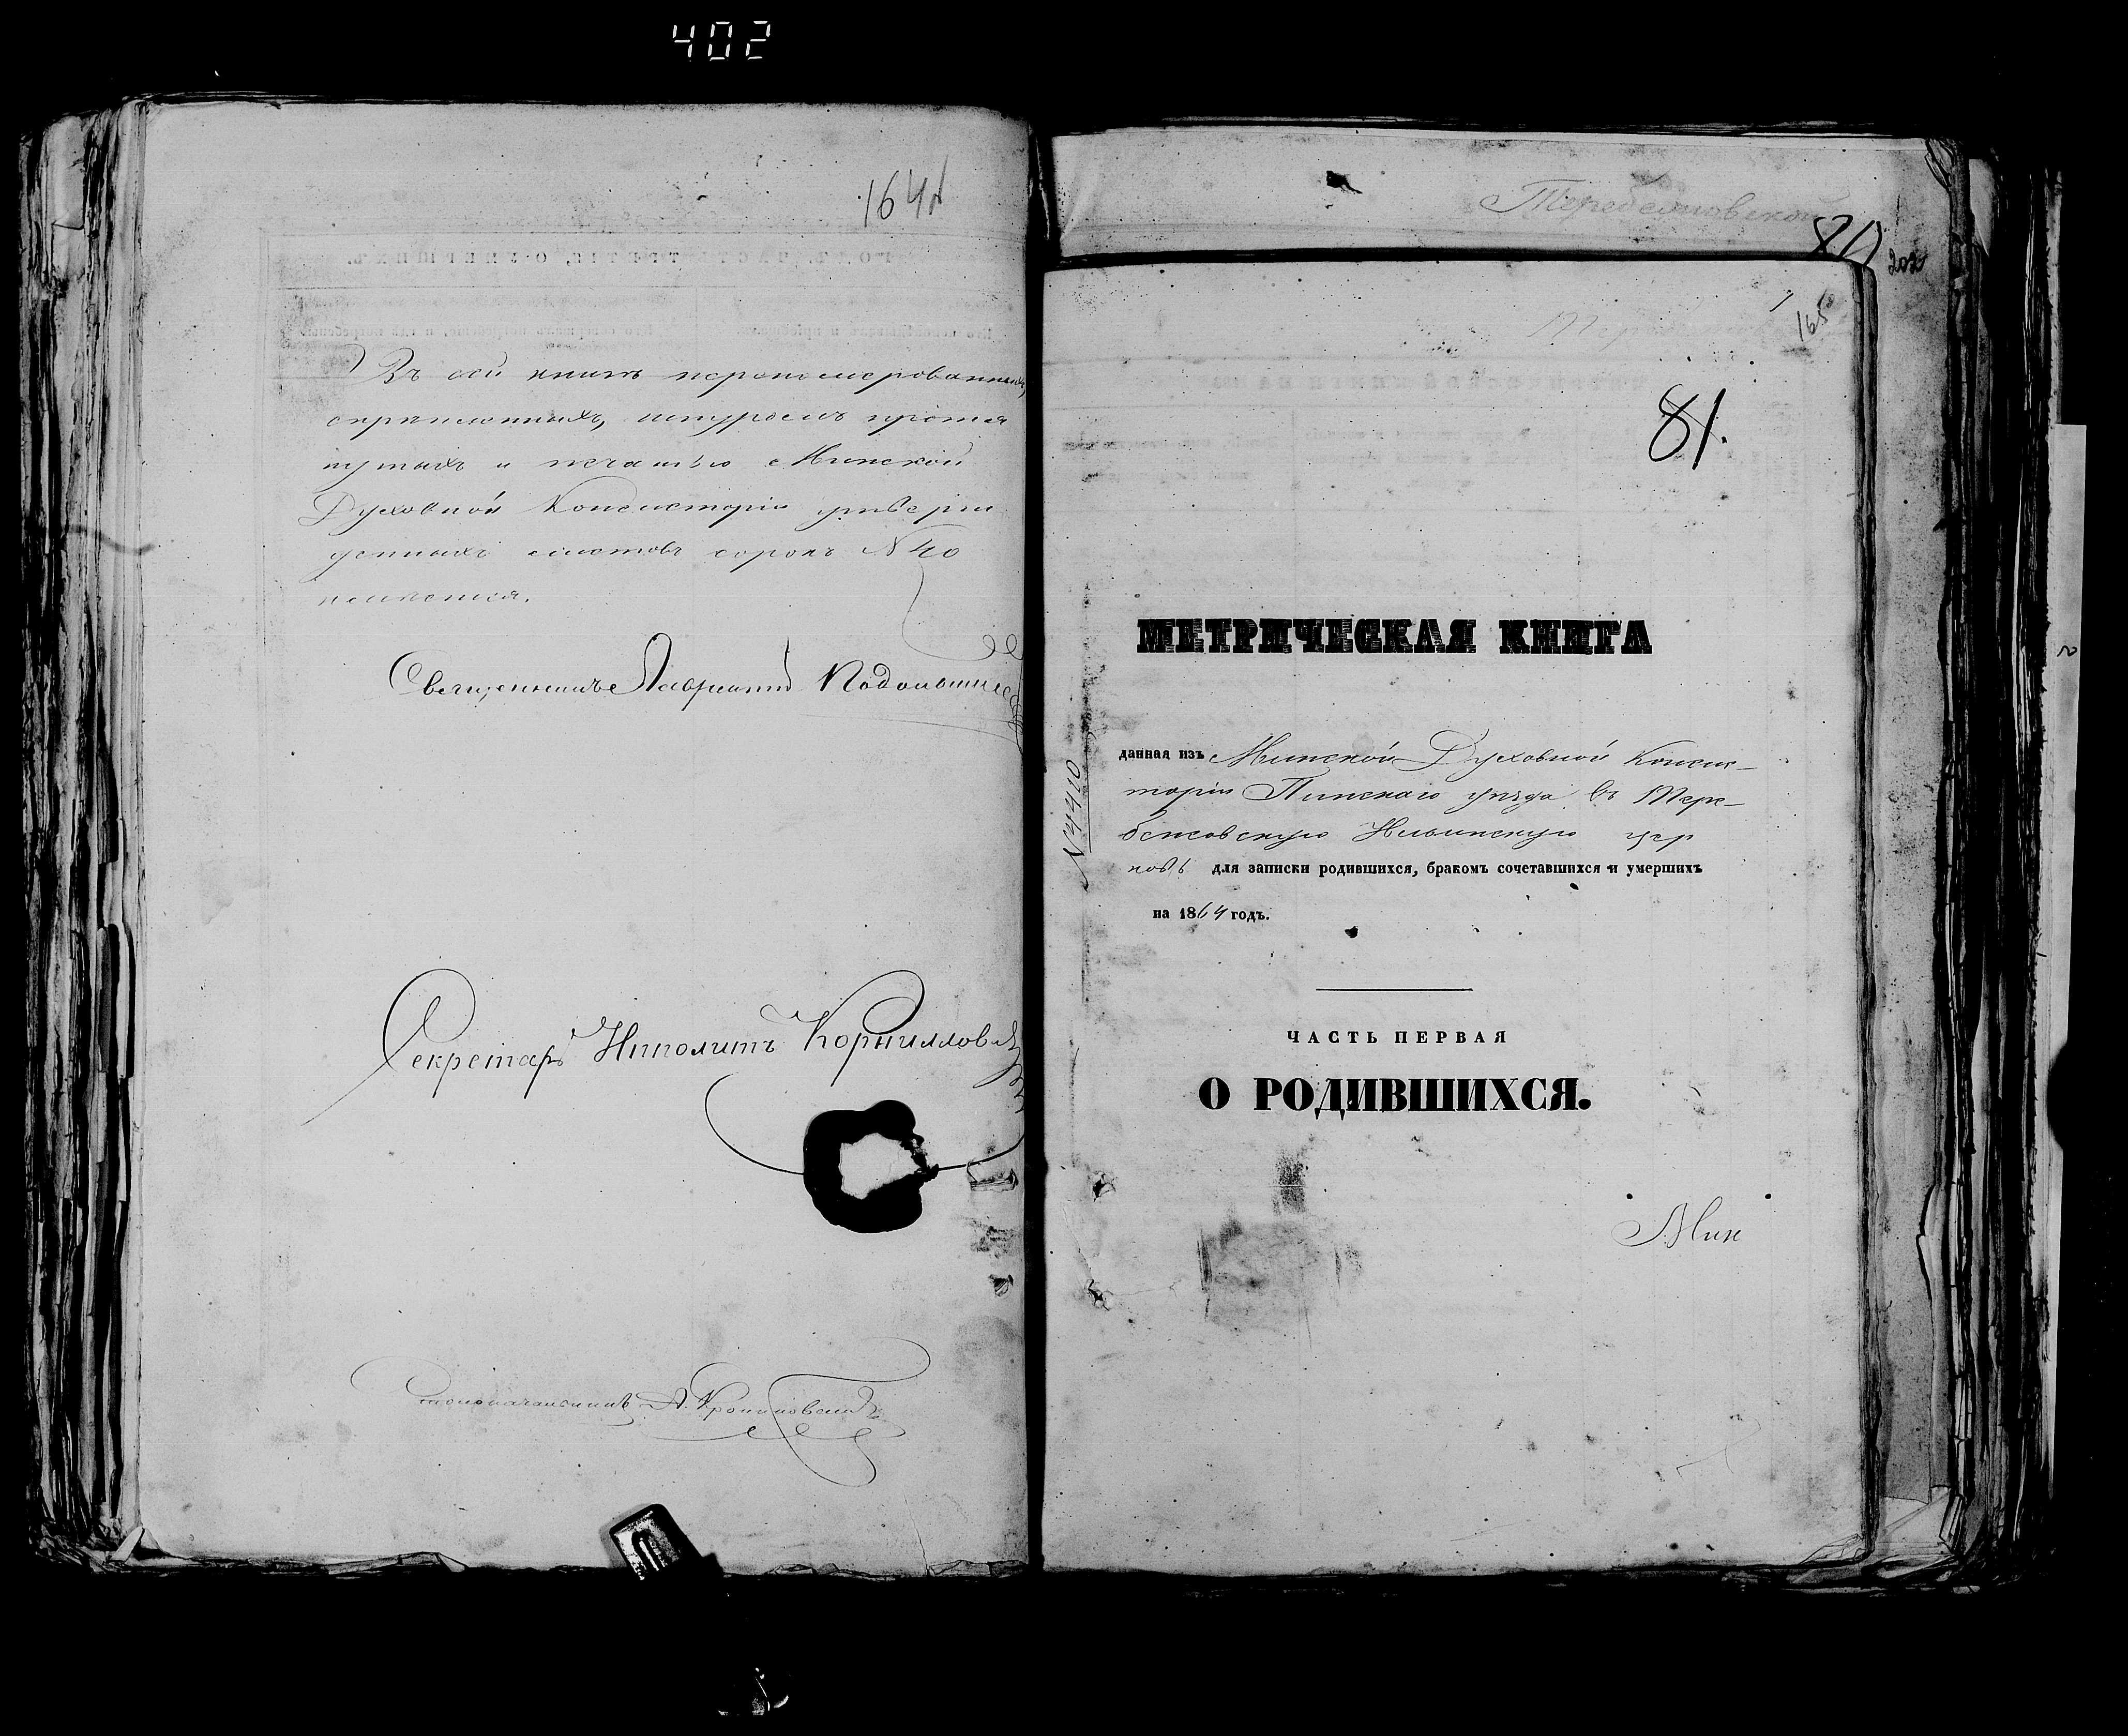 402
164
Въ сей книгѣ перенумерованныхъ,
скрѣпленныхъ, шнуромъ протя
нутыхъ и печатью Минской
Духовной Консисторіи утверж
денныхъ листовъ сорокъ N 40
имѣется.
Священникъ Лаврентій
Секретарь Иполитъ
Столоначальникъ А.
202
165
81.
МЕТРИЧЕСКАЯ КНИГА
N 4410
данная изъ Минской Духовной Консис-
торіи Пинскаго уѣзда въ Тере-
бежовскую Ильинскую цер
ковь для записки родившихся, бракомъ сочетавшихся и умершихъ
на 1864 годъ.
ЧАСТЬ ПЕРВАЯ
О РОДИВШИХСЯ.
Мин